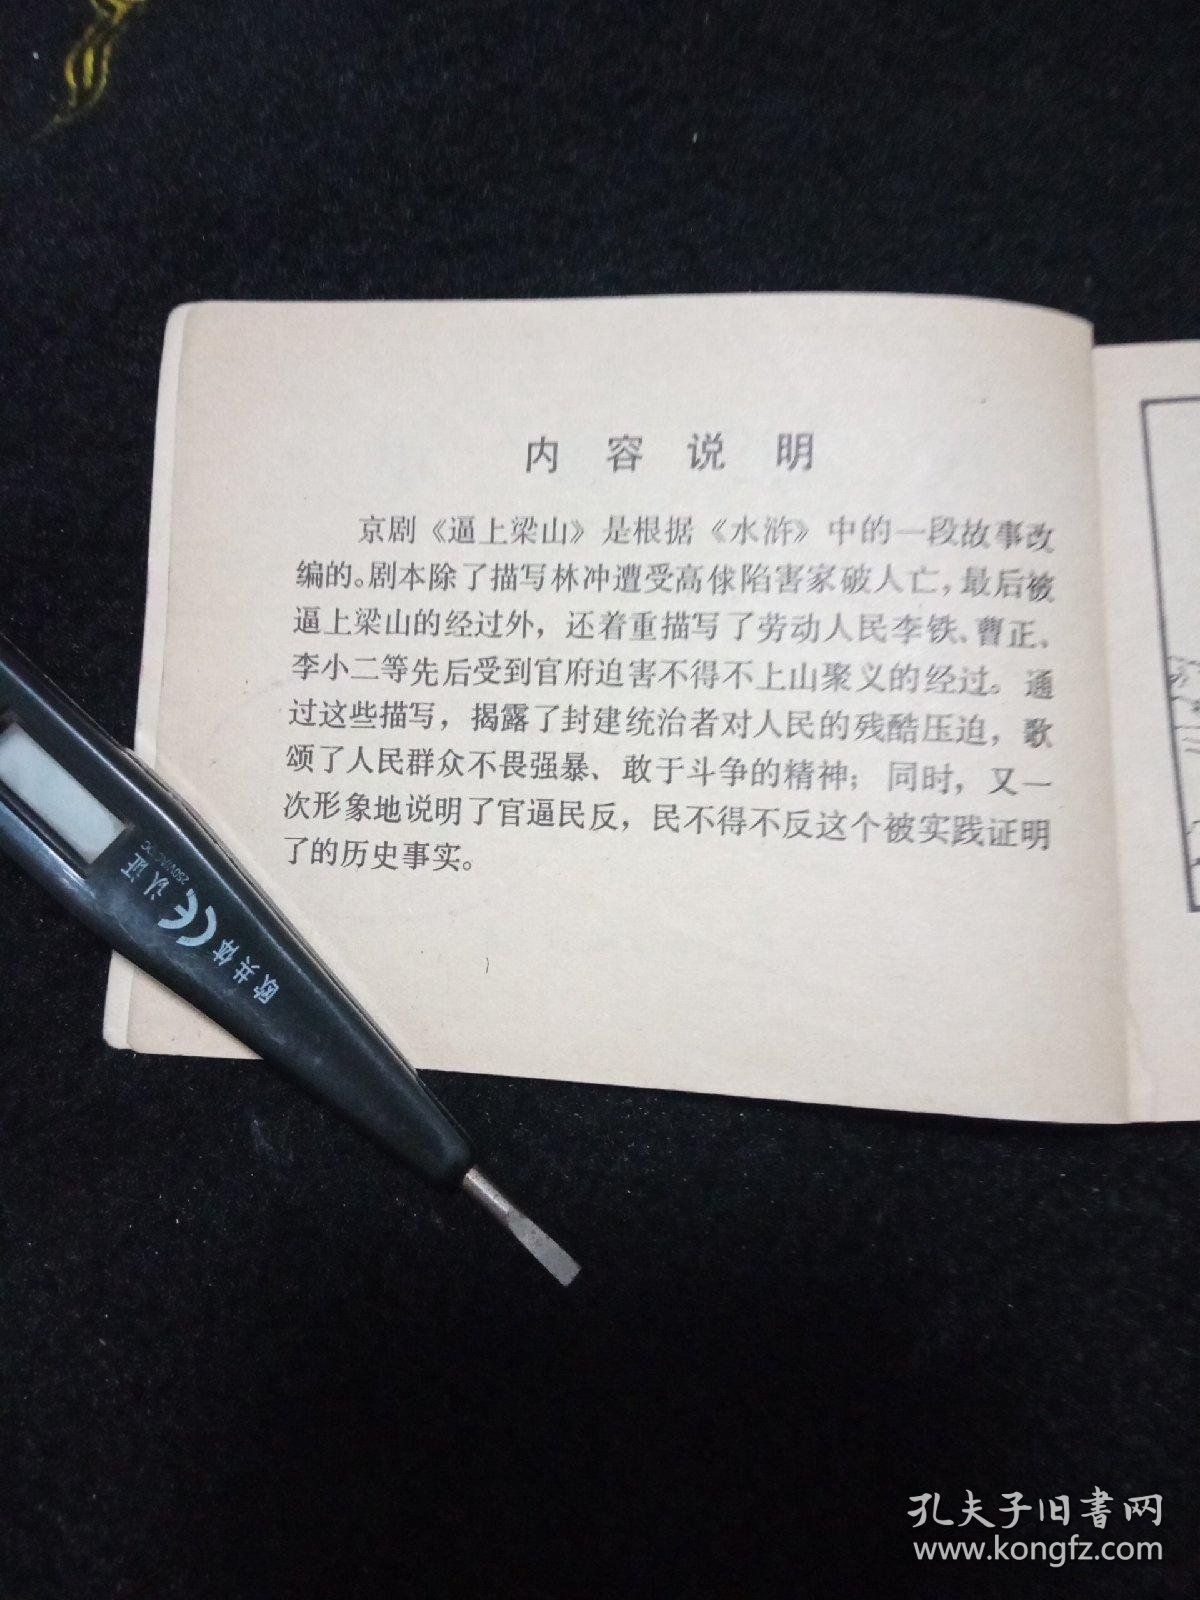 内容说明
京剧《逼上梁山》是根据《水浒》中的一段故事改
编的。剧本除了描写林冲遭受高俅陷害家破人亡，最后被
逼上梁山的经过外，还着重描写了劳动人民李铁、曹正、
李小二等先后受到官府迫害不得不上山聚义的经过。通
过这些描写，揭露了封建统治者对人民的残酷压迫，歌
颂了人民群众不畏强暴、敢于斗争的精神；同时，又一
次形象地说明了官逼民反，民不得不反这个被实践证明
了的历史事实。
欧共体CE认证
孔夫子旧书网
www.kongfz.com